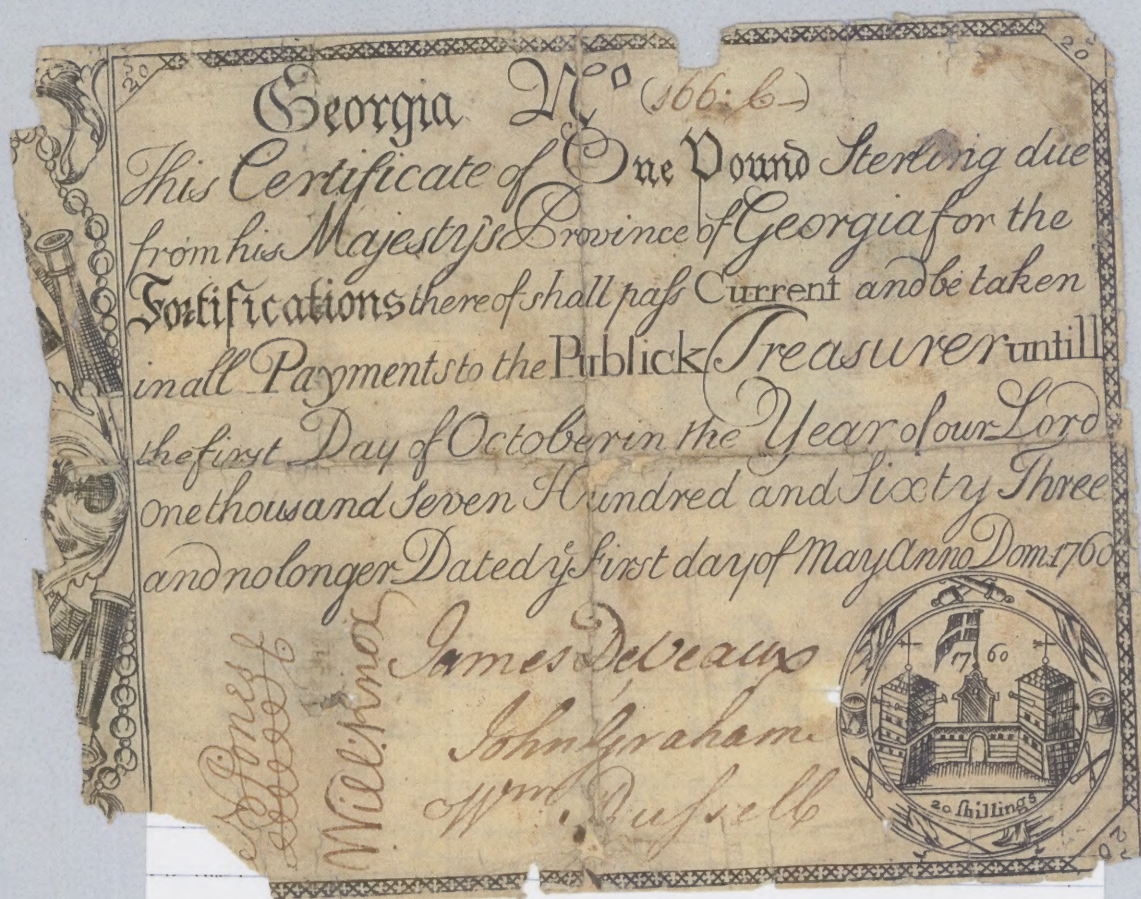 20
20
Georgia No (166: 6-)
This Certificate of One Pound Sterling due
from his Majesty's Province of Georgia for the
Fortifications thereof shall paſs Current and be taken
in all Payments to the Publick Treasurer untill
the first Day of October in the Year of our Lord
one thousand Seven Hundred and Sixty Three
and no longer Dated ye first day of May Anno Dom. 1760
James DeVeaux
John Graham
Wm Ruſsell
Will: Knox
Jones
1760
20 ſhillings
20